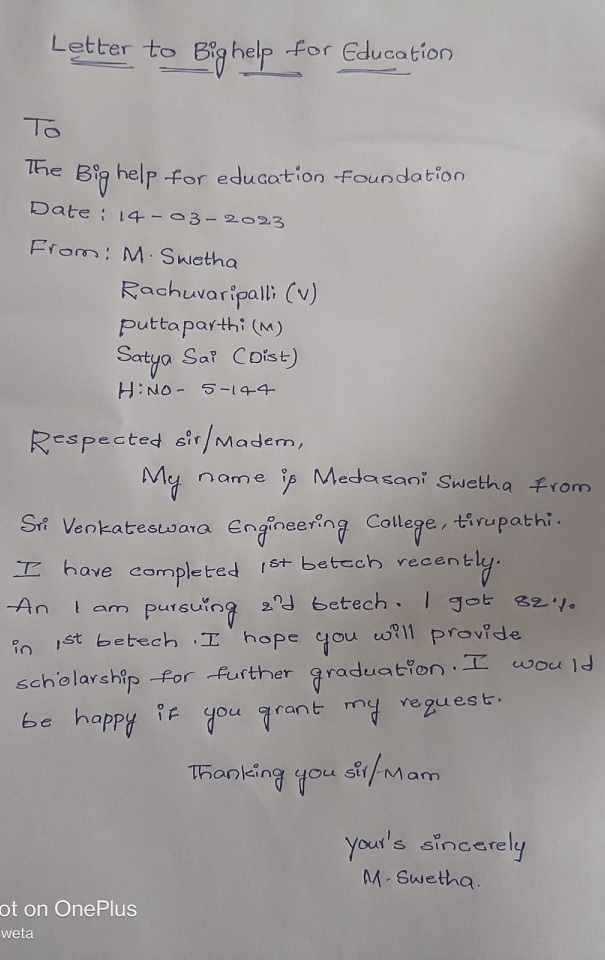 Letter to Big help for Education
To
The Big help for education foundation
Date : 14-03-2023
From: M. Swetha
Rachuvaripalli (V)
puttaparthi (M)
Satya Sai (Dist)
H:NO- 5-144
Respected sir/Madem,
My name is Medasani Swetha from
Sri Venkateswara Engineering College, tirupathi.
I have completed 1st betech recently.
An I am pursuing 2nd betech. I got 82%
in 1st betech. I hope you will provide
scholarship for further graduation. I would
be happy if you grant my request.
Thanking you sir/Mam
your's sincerely
M. Swetha.
ot on OnePlus
weta